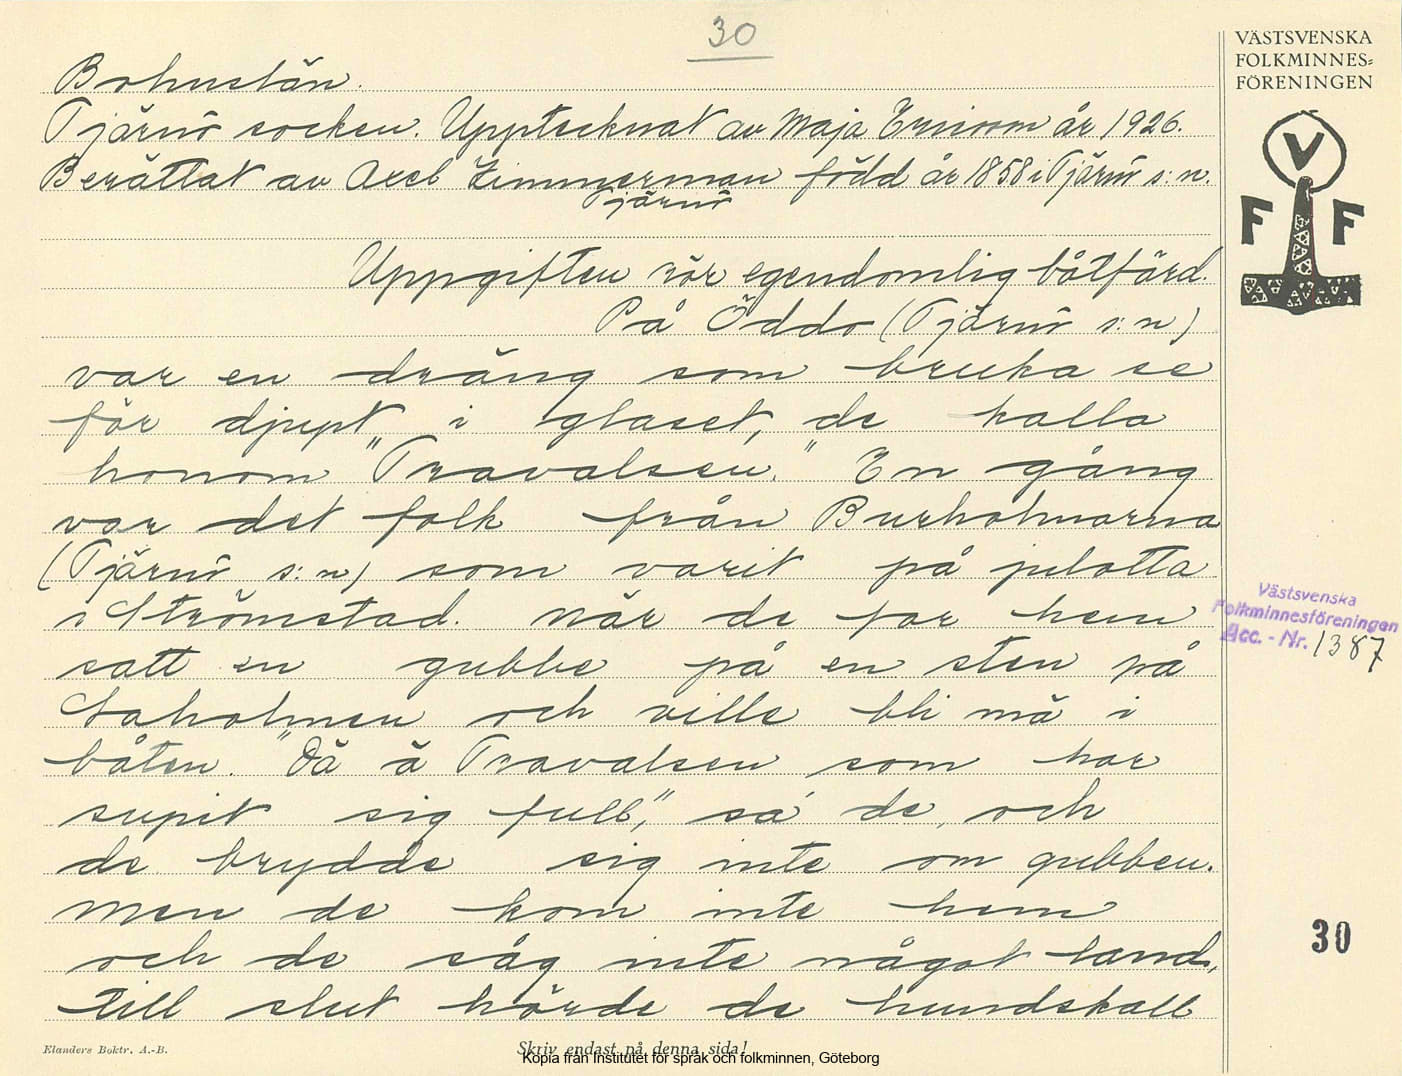 30
VÄSTSVENSKA
FOLKMINNES=
FÖRENINGEN
V
F F
Bohuslän.
Tjärnö socken. Upptecknat av Maja Ericson år 1926.
Berättat av Axel Zimmerman född år 1858 i Tjärnö s:n.
Tjärnö
Uppgiften rör egendomlig båtfärd.
På Öddo (Tjärnö s:n)
var en dräng som bruka se
för djupt i glaset, de kalla
honom "Travalsen." En gång
var det folk från Burholmarna
(Tjärnö s:n) som varit på julotta
i Strömstad. När de for hem
satt en gubbe på en sten på
holmen och ville bli mä i
båten. "Dä ä Travalsen som har
supit sig full," sa de, och
de brydde sig inte om gubben.
Men de kom inte hem
och de såg inte något land,
till slut hörde de hundskall
Västsvenska
Folkminnesföreningen
Acc. - Nr. 1387
30
Elanders Boktr. A.-B.
Skriv endast på denna sida!
Kopia från Institutet för språk och folkminnen, Göteborg